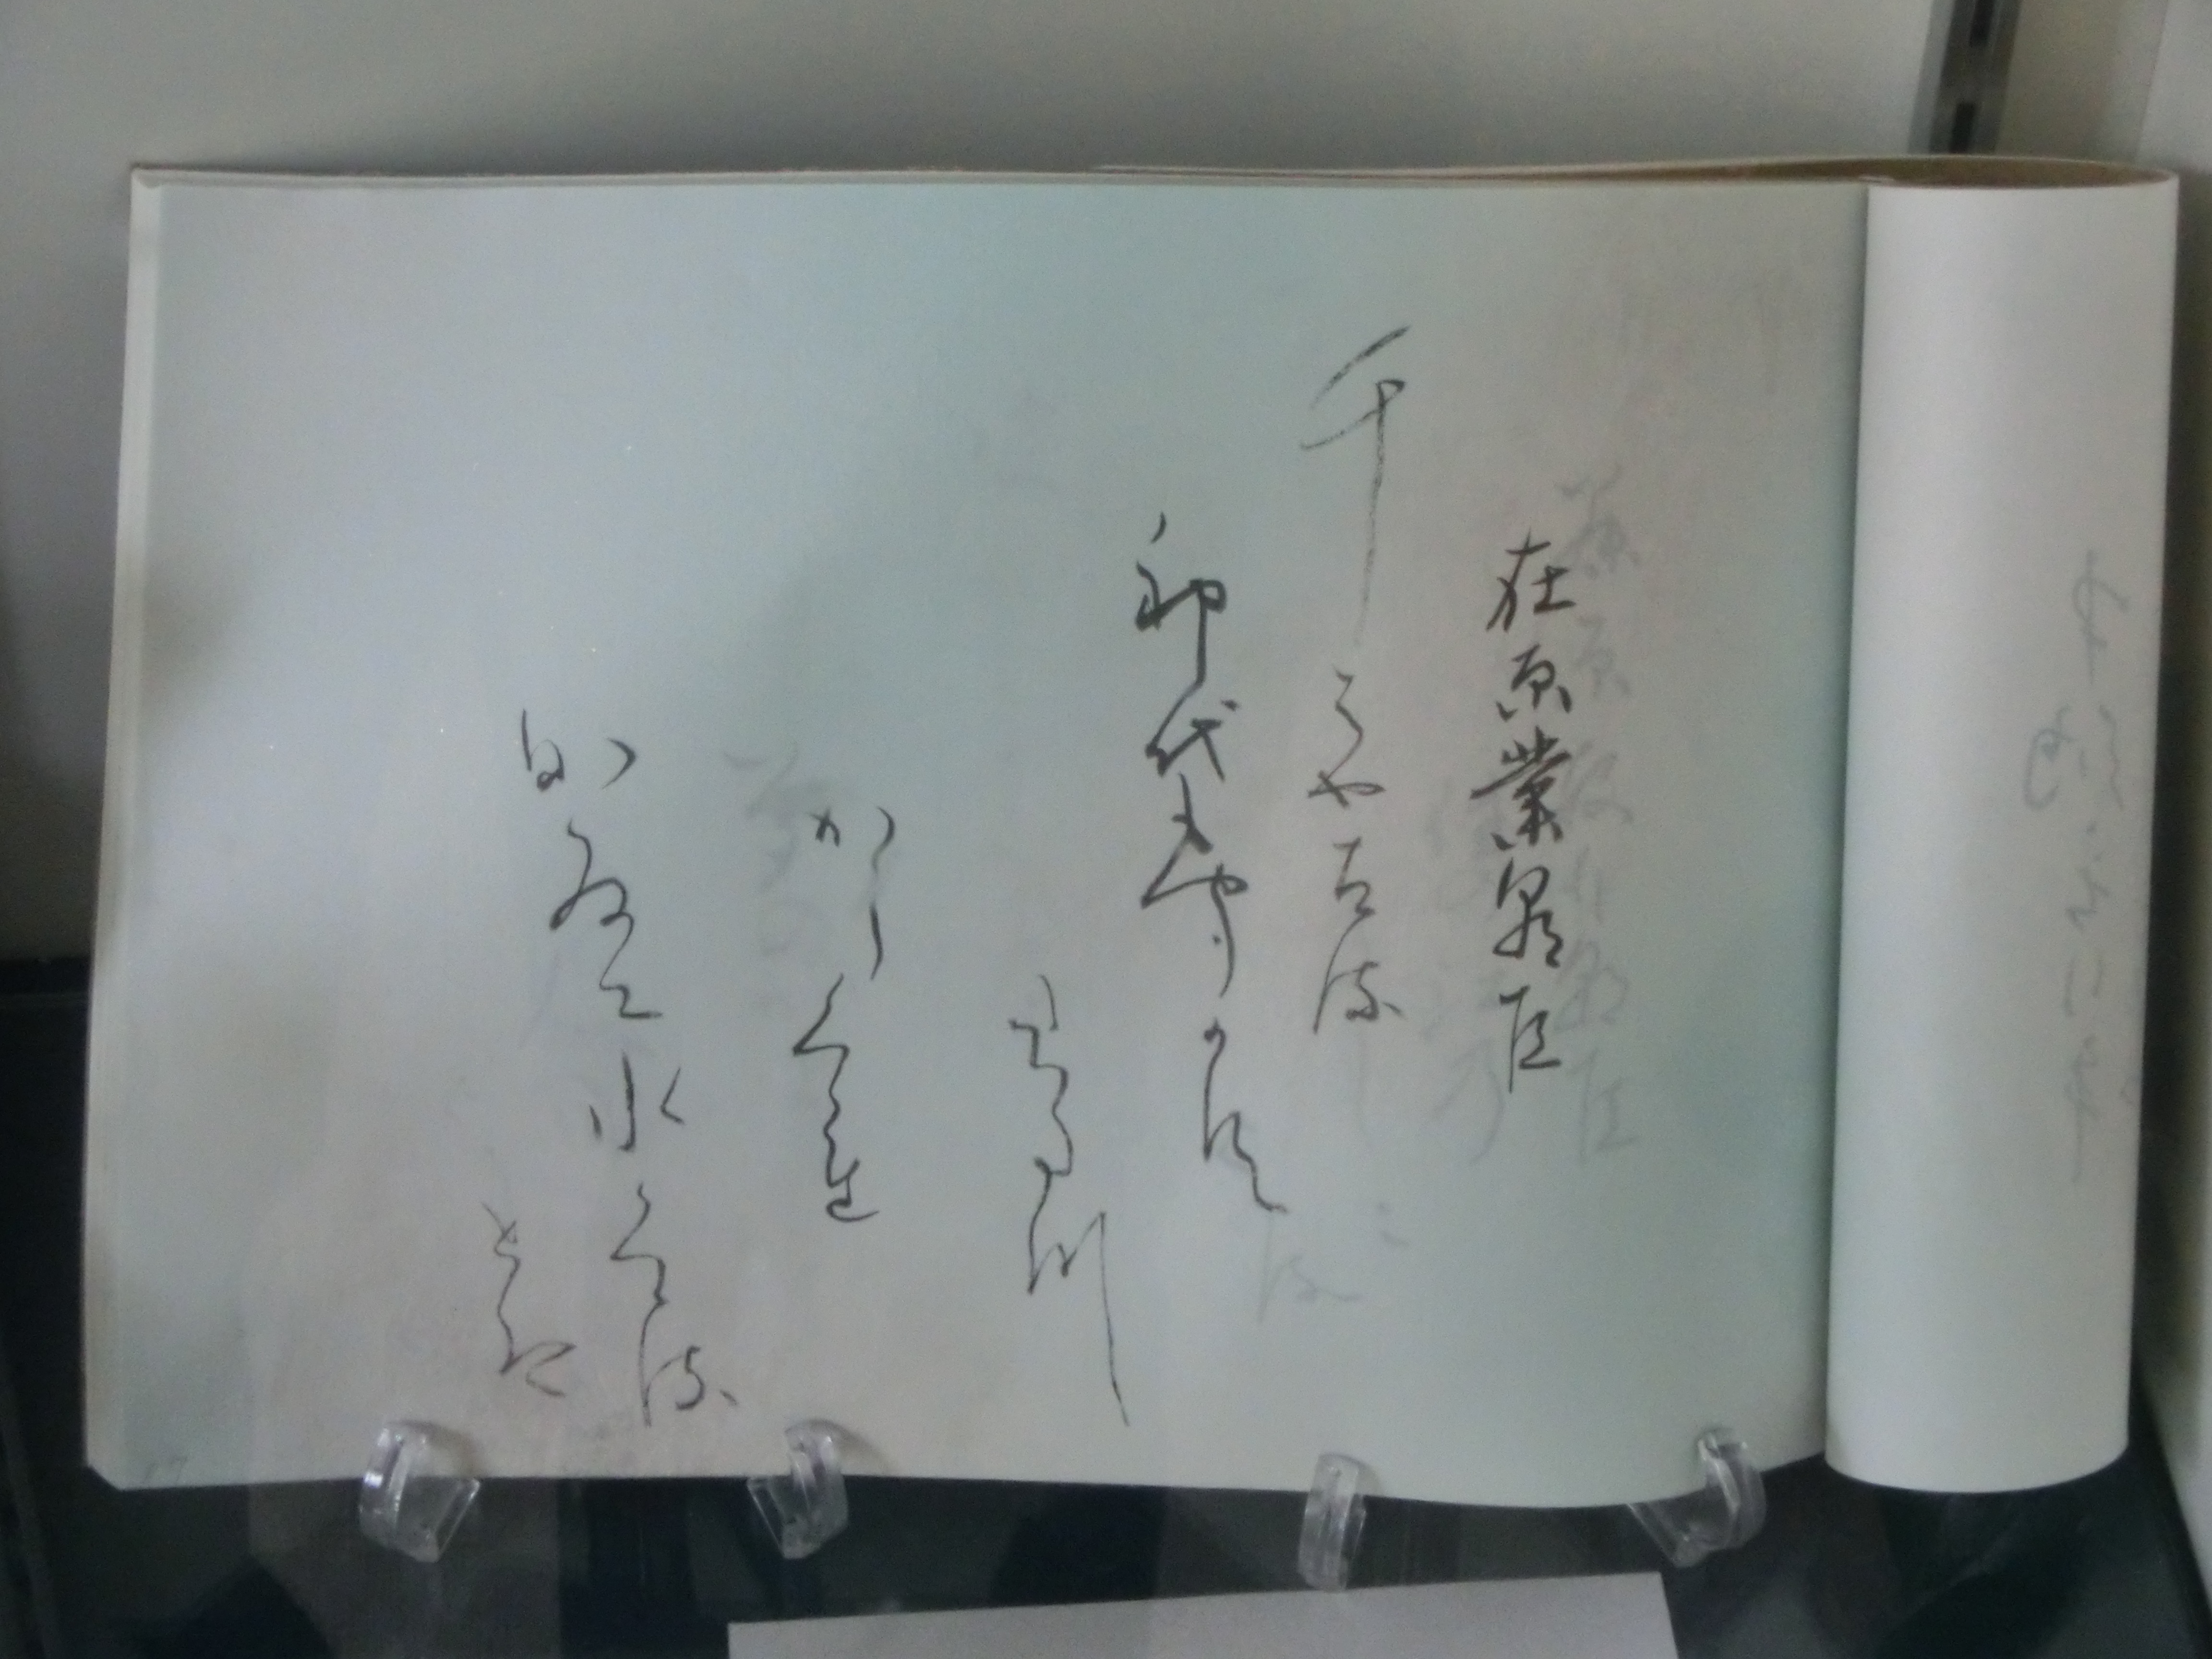 在原業平朝臣
千はやふる
神代もきかす
たつた川
からくれ
なゐに水くゝる
とは